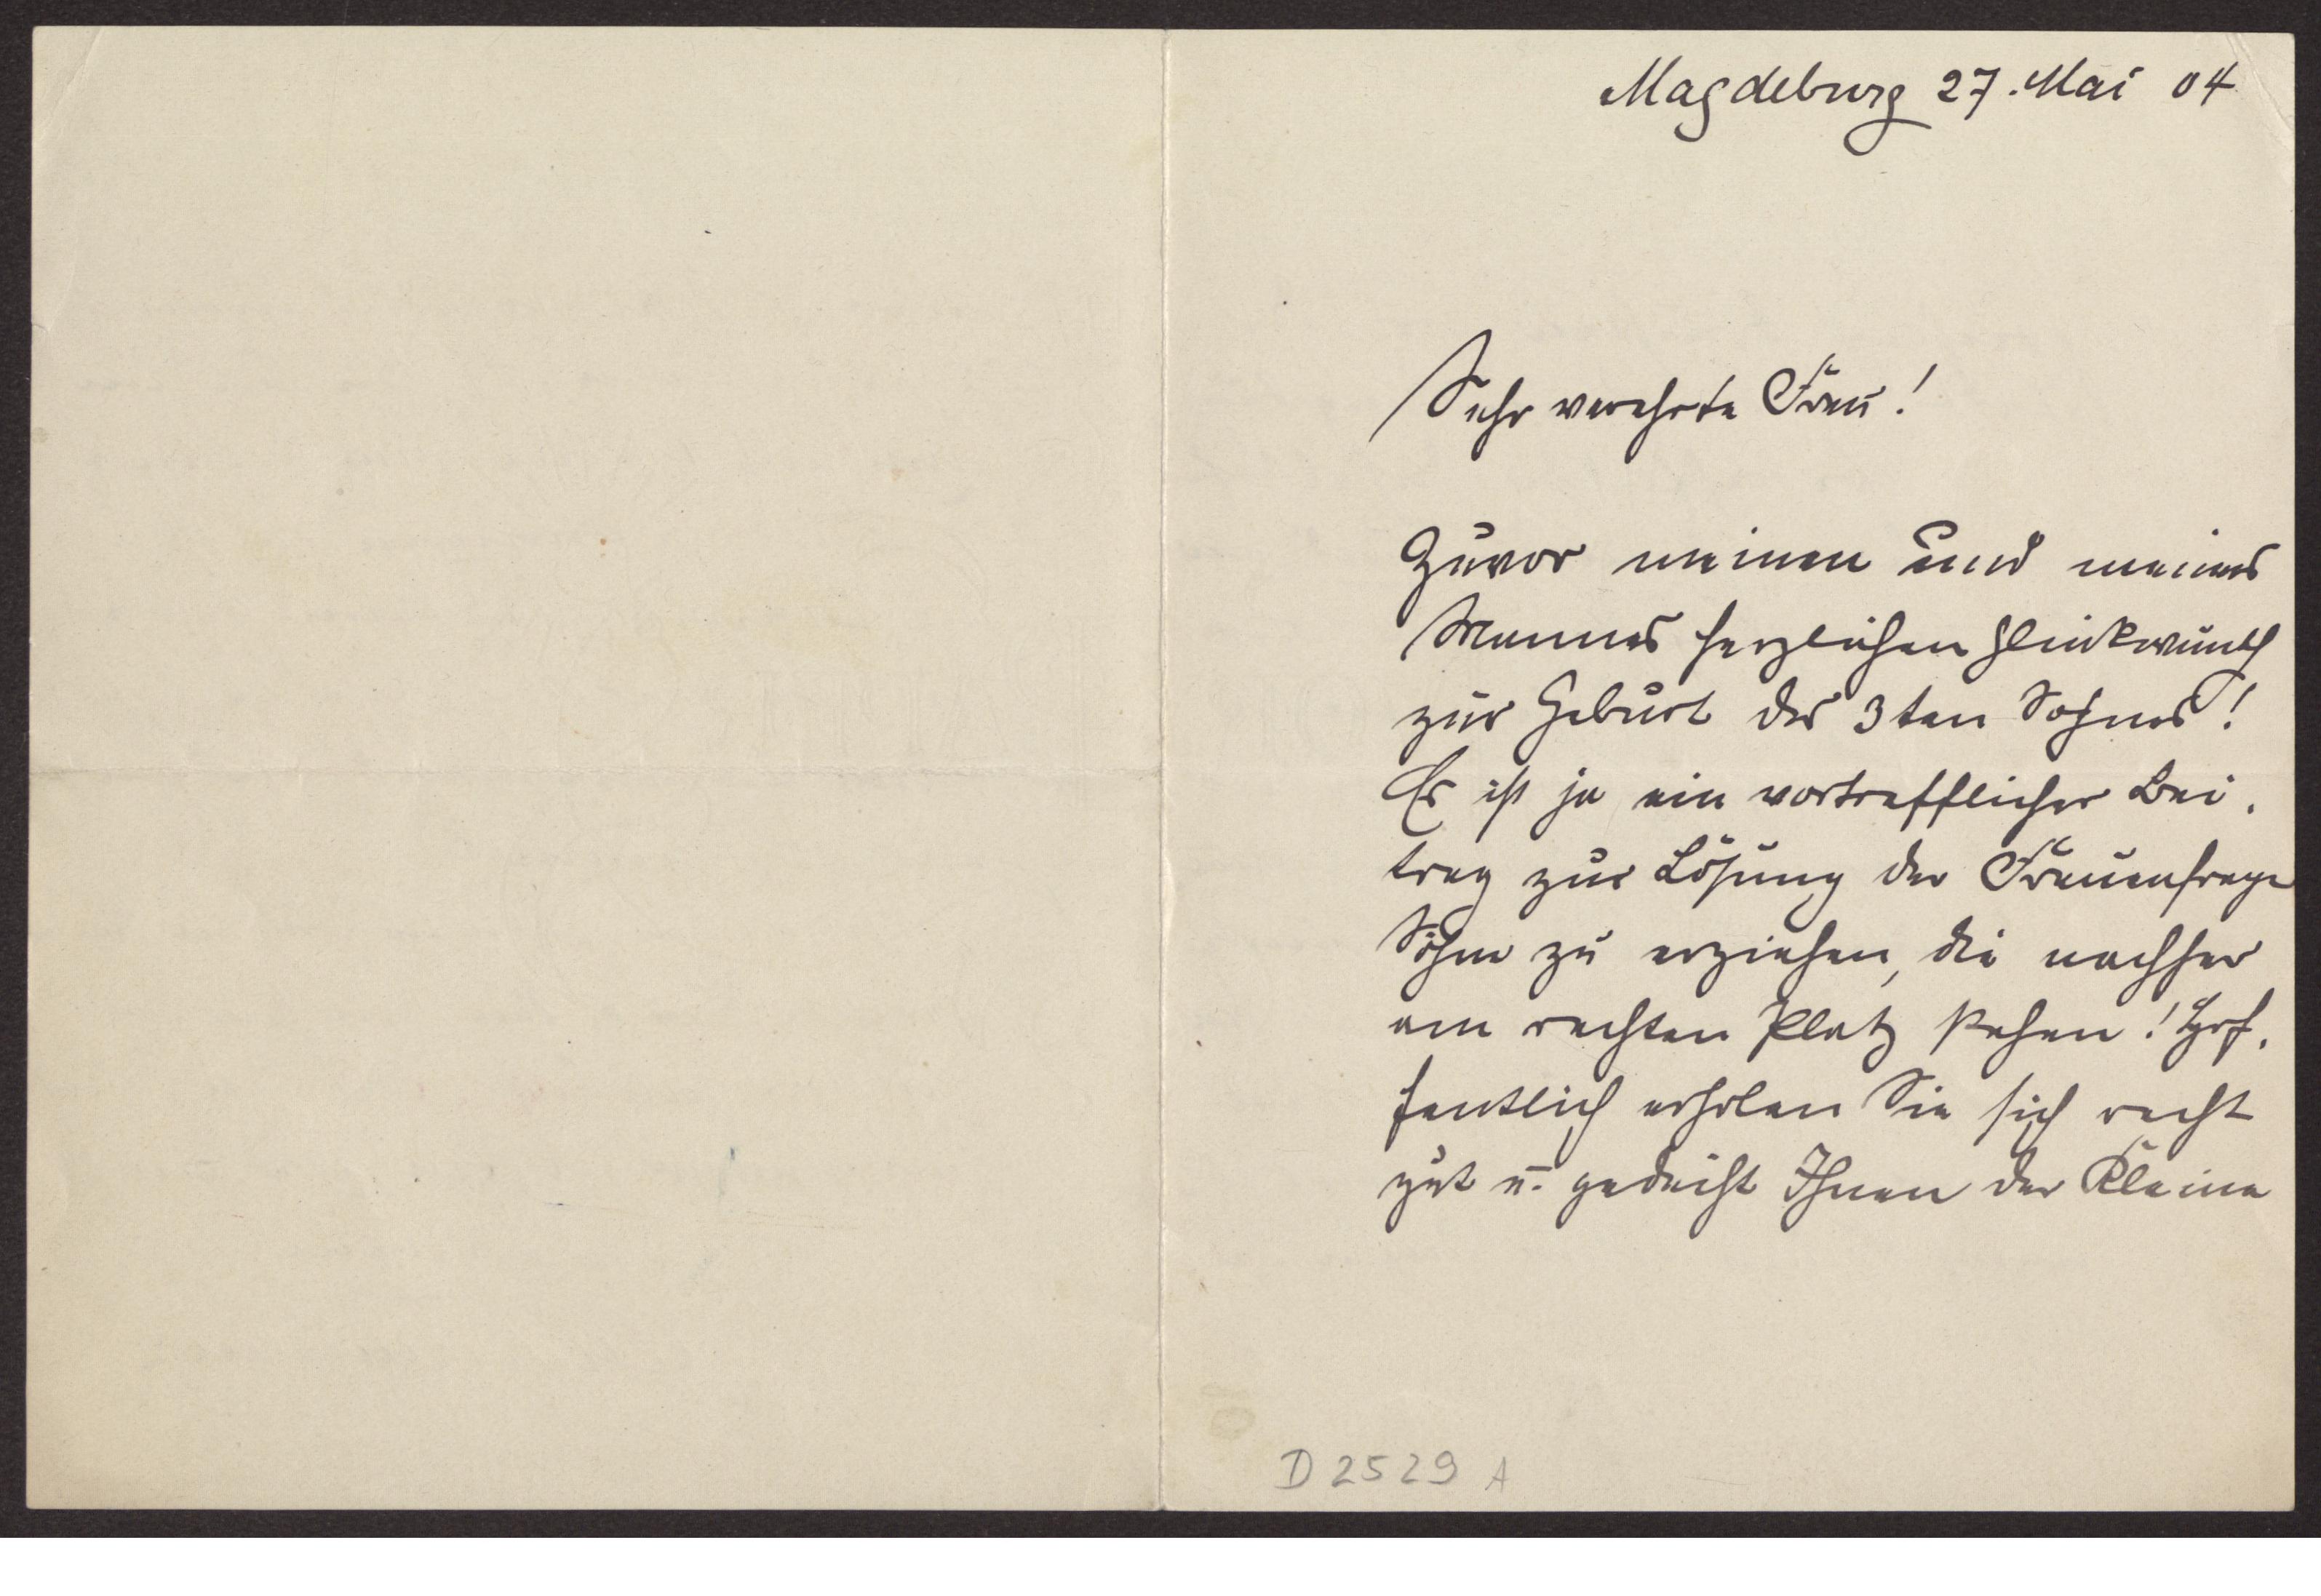 Magdeburg 27. Mai 04
Sehr verehrte Frau!
Zuvor meinen und meines
Mannes herzlichen Glückwunsch
zur Geburt des 3ten Sohnes!
Es ist ja ein vortrefflicher Bei-
trag zur Lösung der Frauenfrage
Söhne zu erziehen, die nachher
am rechten Platz stehen! Hof-
fentlich erholen Sie sich recht
gut u. gedeiht Ihnen der Kleine
D 2529 A